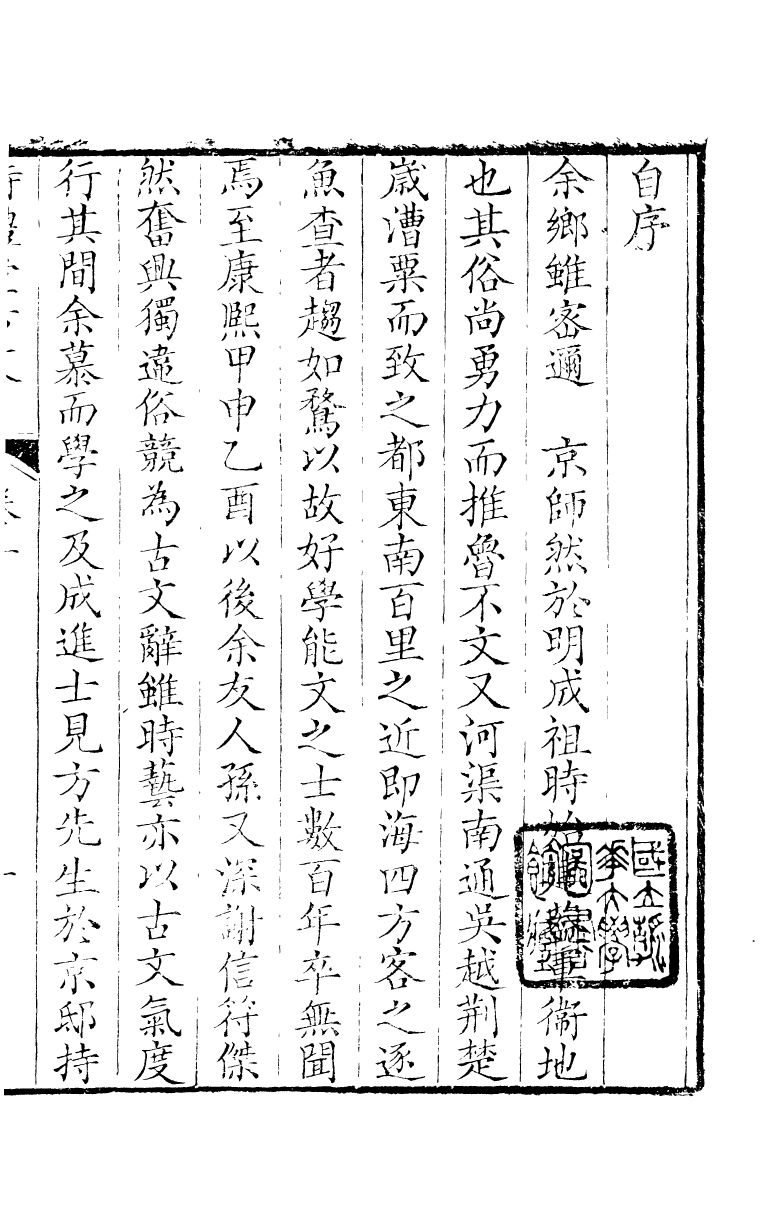 自序
余鄉雖密邇　京師然於明成祖時始　軍衞地
也其俗尚勇力而推魯不文又河渠南通吳越荆楚
歳漕粟而致之都東南百里之近即海四方客之逐
魚查者趨如鶩以故好學能文之士數百年卒無聞
焉至康熙甲申乙酉以後余友人孫又深謝信符傑
然奮興獨違俗競為古文辭雖時藝亦以古文氣度
行其間余慕而學之及成進士見方先生於京邸持
國立
大學